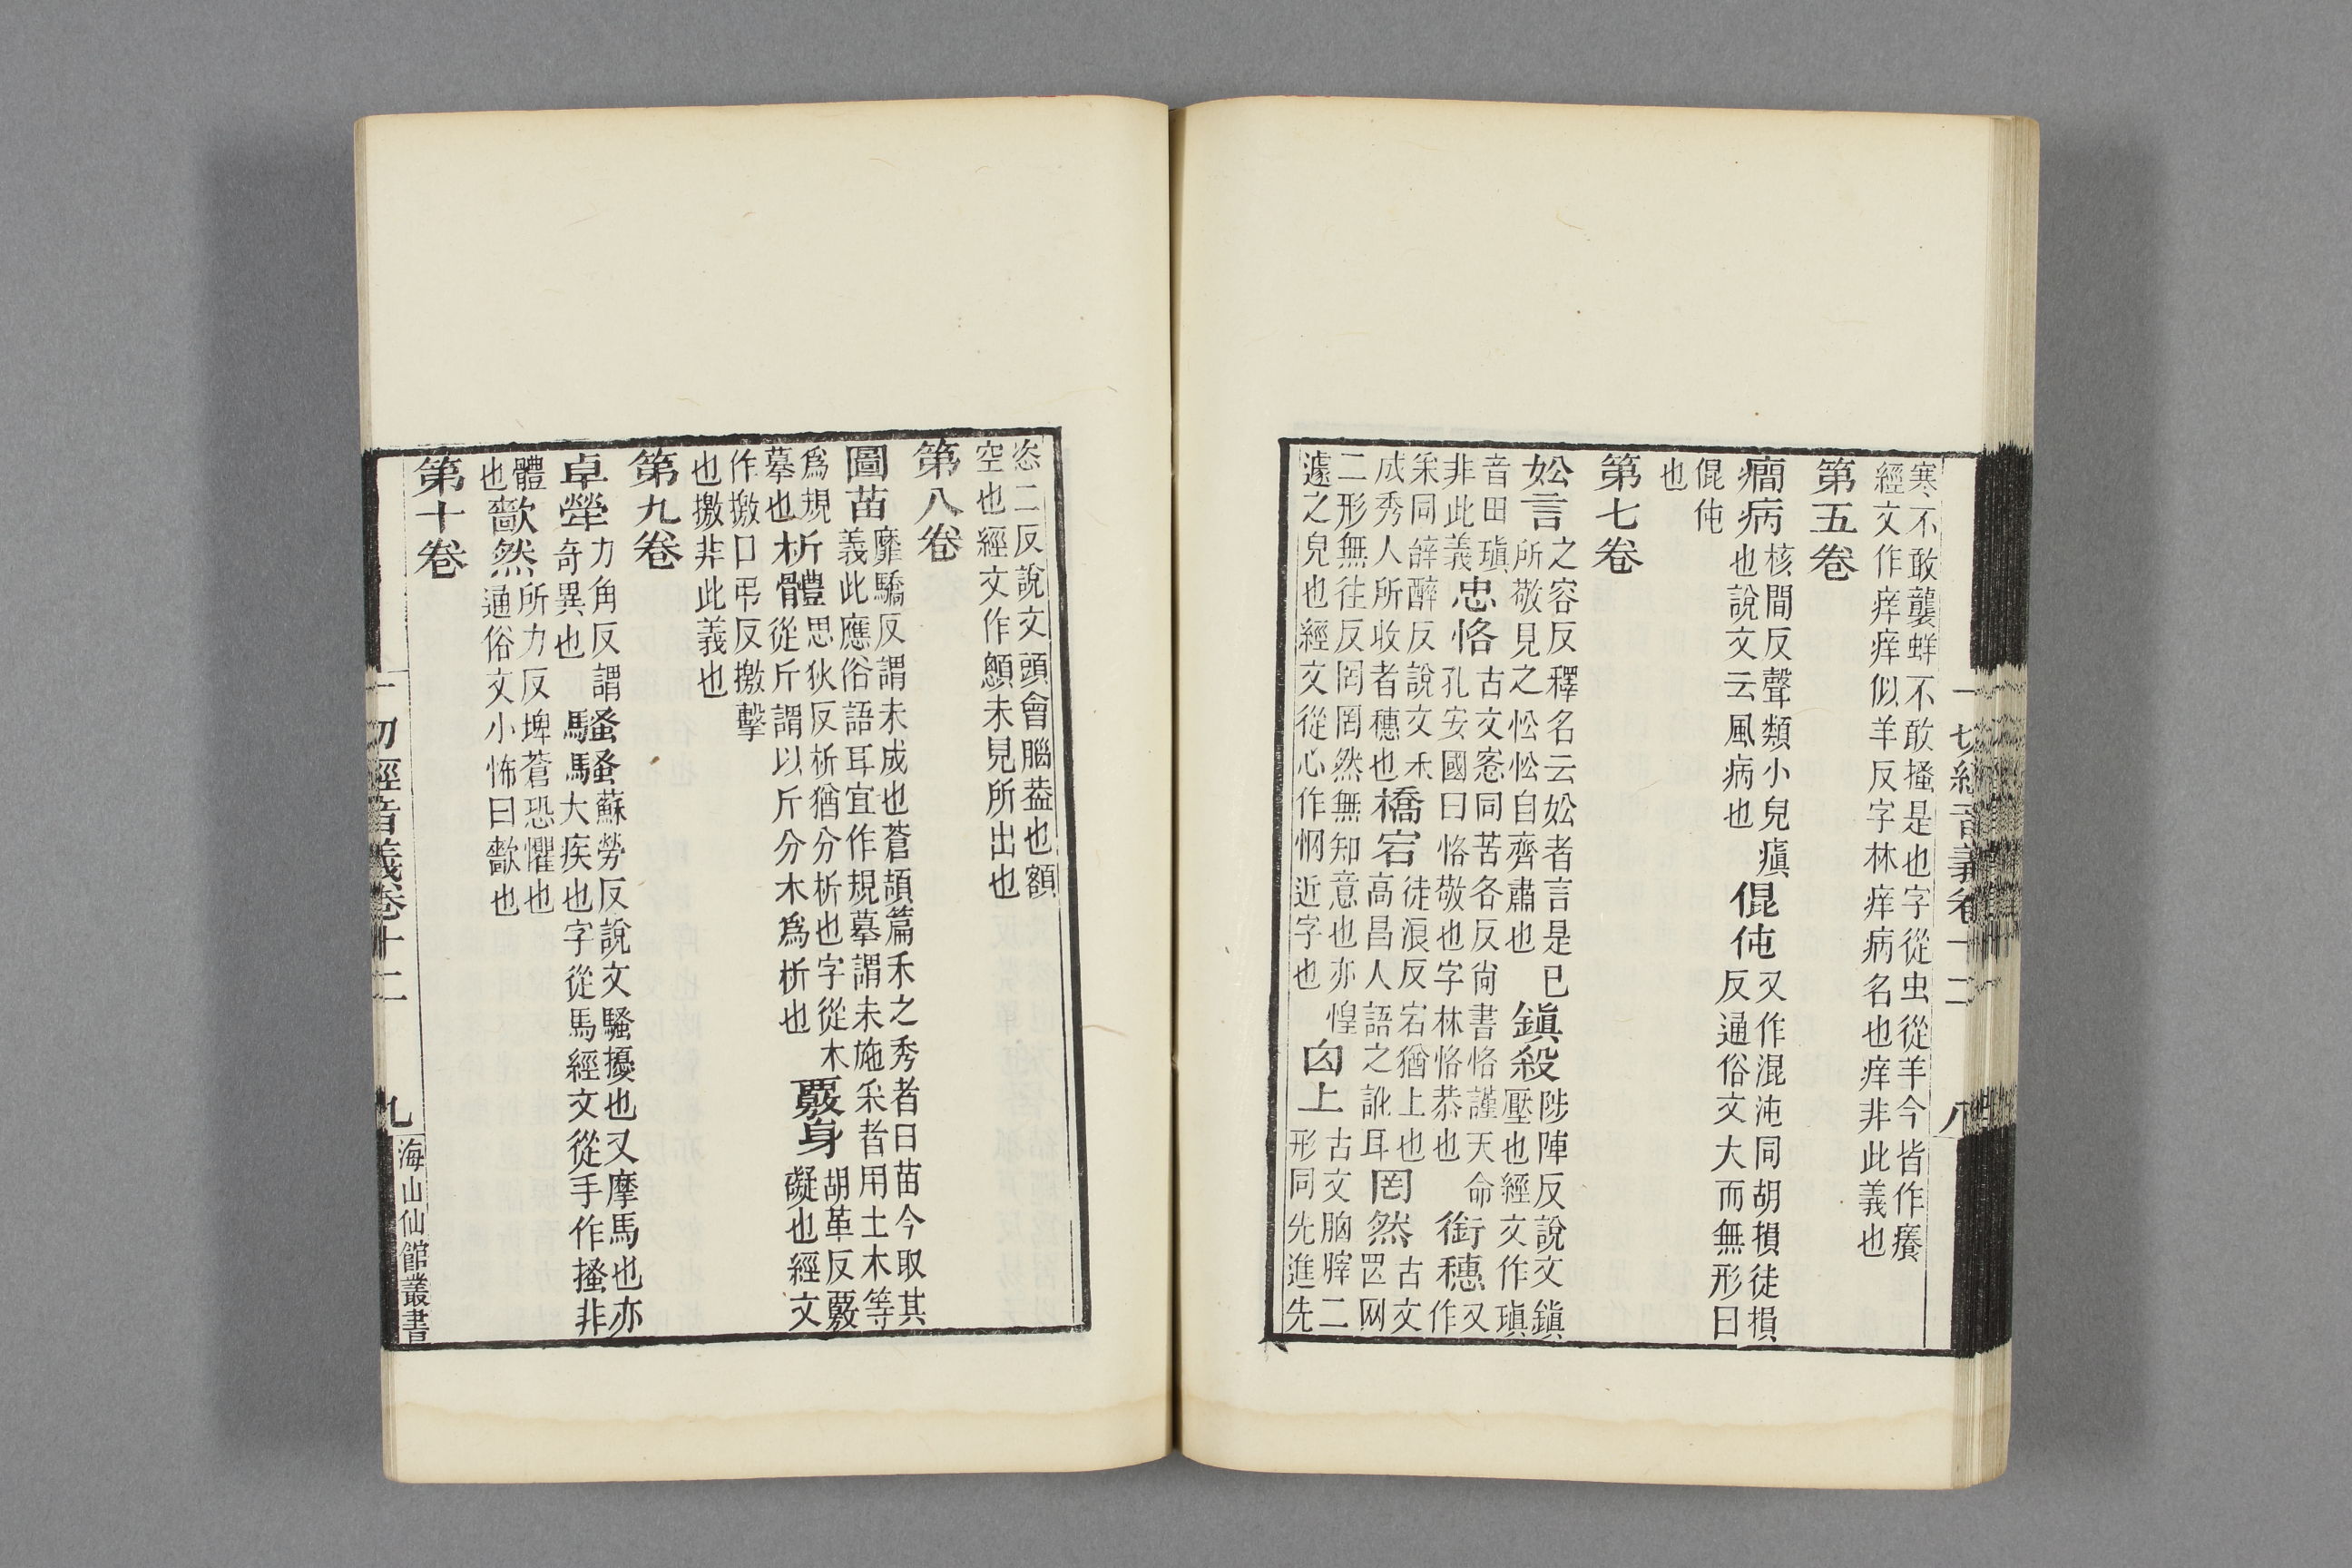 寒不敢襲蛘不敢搔是也字從虫從羊今皆作癢
經文作痒痒似羊反字林痒病名也痒非此義也
第五卷
癎病核間反聲類小兒瘨也說文云風病也倱伅又作混沌同胡損徒損反通俗文大而無形曰
倱伅也
第七卷
妐言之容反釋名云妐者言是已所敬見之忪忪自齊肅也鎭殺陟陣反說文鎭壓也經文作瑱
音田瑱非此義忠恪古文愙同苦各反尙書恪謹天命孔安國曰恪敬也字林恪恭也銜穗又作
采同辤醉反說文禾成秀人所收者穗也橋宕徒浪反宕猶上也高昌人語之訛耳罔然古文𦊞网
二形無往反罔罔然無知意也亦惶遽之皃也經文從心作惘近字也囟上古文𦞤䏢二形同先進先
恣二反說文頭會腦葢也額空也經文作顖未見所出也
第八卷
圖苗靡驕反謂未成也蒼頡篇禾之秀者曰苗今取其義此應俗語耳宜作規摹謂未施采者用土木等
爲規摹也析體思狄反析猶分析也字從木從斤謂以斤分木爲析也覈身胡革反覈礙也經文
作撽口弔反撽擊也撽非此義也
第九卷
卓犖力角反謂奇異也騷騷蘇勞反說文騷擾也又摩馬也亦大疾也字從馬經文從手作搔非
體也歡然所力反埤蒼恐懼也通俗文小怖曰歡也
第十卷
一切經音義卷十二
八
一切經音義卷十二
九
海山仙館叢書